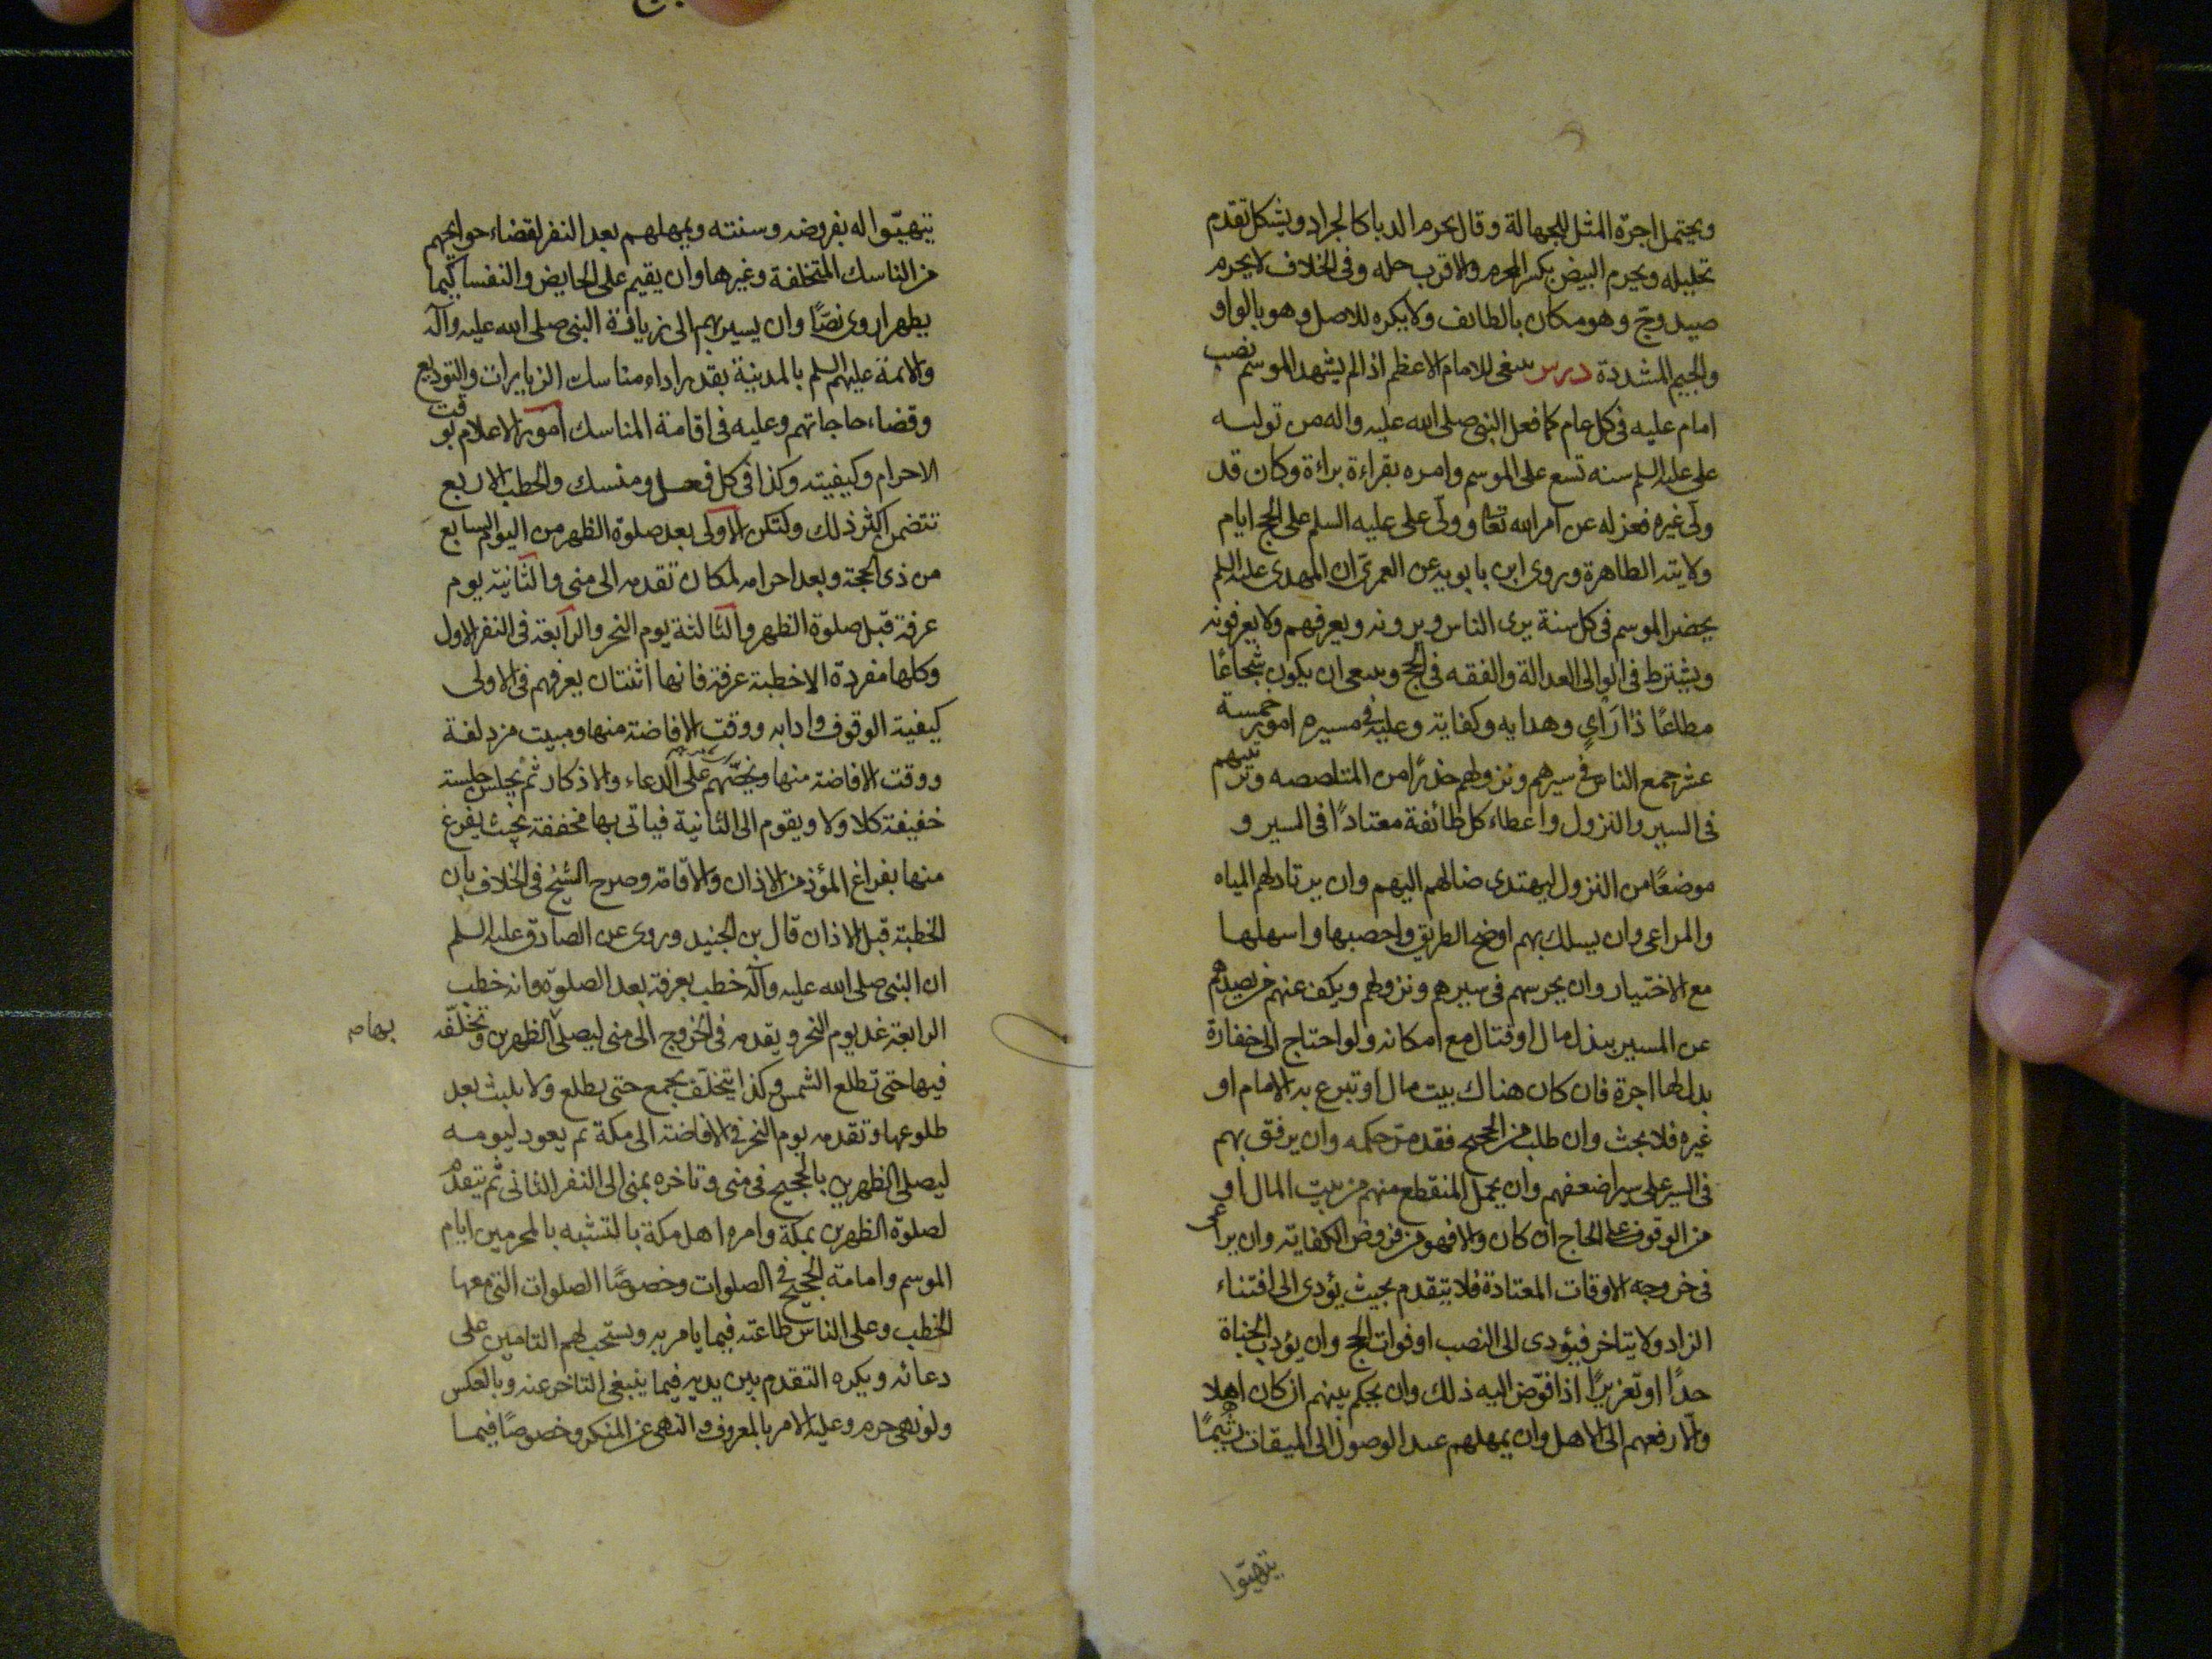 ويحتمل اجرة المثل للجهالة وقال يحرم الدبا كالجراد ويشكل تقدم
تحليله ويحرم البيض بكسر المحرم والاقرب حله وفى الخلاف لا يحرم
صيد وج وهو مكان بالطائف ولا يكره للاصل وهو بالواو
والجيم المشددة درس ينبغى للامام الاعظم اذا لم يشهد الموسم نصب
امام عليه فى كل عام كما فعل النبى صلى الله عليه واله من تولية
على عليه السلم سنه تسع على الموسم وامره بقراءة براءة وكان قد
ولّى غيره فعزله عن امر الله تعا وولّى على عليه السلم على الحج ايام
ولايته الطاهرة وروى ابن بابويه عن العمرى ان المهدى عليه السلم
يحضر الموسم فى كل سنة يرى الناس ويرونه ويعرفهم ولا يعرفونه
ويشترط فى الوالى العدالة والفقه فى الحج وينبغى ان يكون شجاعًا
مطاعًا ذا رَأىٍ وهدايه وكفاية وعليه فى مسيره امور خمسة
عشر جمع الناس فى سيرهم ونزولهم حذرًا من المتلصصه وترتيبهم
فى السير والنزول واعطاء كل طائفة معتادًا فى السير و
موضعًا من النزول ليهتدى ضالهم اليهم وان يرتاد لهم المياه
والمراعى وان يسلك بهم اوضح الطريق واخصبها واسهلها
مع الاختيار وان يحرسهم فى سيرهم ونزولهم ويكف عنهم من يصدهم
عن المسير ببذل مال او قتال مع امكانه ولو احتاج الى خفارة
بذل لها اجرة فان كان هناك بيت مال او تبرع به الامام او
غيره فلا بحث وان طلب من الحجيج فقد مرّ حكمه وان يرفق بهم
فى السير على سير اضعفهم وان يحمل المنقطع منهم من بيت المال او
من الوقوف على الحاج ان كان والا فهو من فروض الكفاية وان يراعى
فى خروجه الاوقات المعتادة فلا يتقدم بحيث يؤدى الى افتناء
الزاد ولا يتاخر فيؤدى الى النصب او فوات الحج وان يؤدب الجناة
حدًا او تعزيرًا اذا فوّض اليه ذلك وان يحكم بينهم ان كان اهلا
والّا رفعهم الى الاهل وان يمهلهم عند الوصول الى الميقات ريثما
يتهيّوا
يتهيّوا له بفروضه وسنته ويمهلهم بعد النفر لقضاء حوايجهم
من المناسك المتخلفة وغيرها وان يقيم على الحايض والنفسا كيما
يطهرا روى نصًّا وان يسير بهم الى زيارة النبى صلى الله عليه وآله
والائمة عليهم السلم بالمدينة بقدر اداء مناسك الزيارات والتوديع
وقضاء حاجاتهم وعليه فى اقامة المناسك امور الاعلام بوقت
الاحرام وكيفيته وكذا فى كل فعل ومنسك والخطب الاربع
تتضمن اكثر ذلك ولتكن الاولى بعد صلوة الظهر من اليوم السابع
من ذى الحجة وبعد احرامه لمكان تقدمه الى منى والثانية يوم
عرفة قبل صلوة الظهر والثالثة يوم النحر والرابعة فى النفر الاول
وكلها مفردة الا خطبة عرفة فانها اثنتان يعرفهم فى الاولى
كيفية الوقوف وادابه ووقت الافاضة منها ومبيت مزدلفة
ووقت الافاضة منها ويحثهم على الدعاء والاذكار ثم يجلس جلسة
خفيفة كلا ولا ويقوم الى الثانية فياتى بها مخففة بحيث يفرغ
منها بفراغ المؤذن من الاذان والاقامة وصرح الشيخ فى الخلاف بان
الخطبة قبل الاذان قال بن الجنيد وروى عن الصادق عليه السلم
ان النبى صلى الله عليه وآله خطب بعرفة بعد الصلوة وانه خطب
الرابعة غد يوم النحر ويقدمه فى الخروج الى منى ليصلى الظهرين وتخلّفه
بها
فيها حتى تطلع الشمس وكذا يتخلّف بجمع حتى يطلع ولا يلبث بعد
طلوعها وتقدمه يوم النحر فى الافاضة الى مكة ثم يعود ليومه
ليصلى الظهرين بالحجيج فى منى وتاخره بمنى الى النفر الثانى ثم يتقدم
لصلوة الظهرين بمكة وامره اهل مكة بالتشبه بالمحرمين ايام
الموسم وامامة الحجيج فى الصلوات وخصوصًا الصلوات التى معها
الخطب وعلى الناس طاعته فيما يامر به ويستحب لهم التامين على
دعائه ويكره التقدم بين يديه فيما ينبغى التاخر عنه وبالعكس
ولو نهى حرم وعليه الامر بالمعروف والنهى عن المنكر وخصوصًا فيما